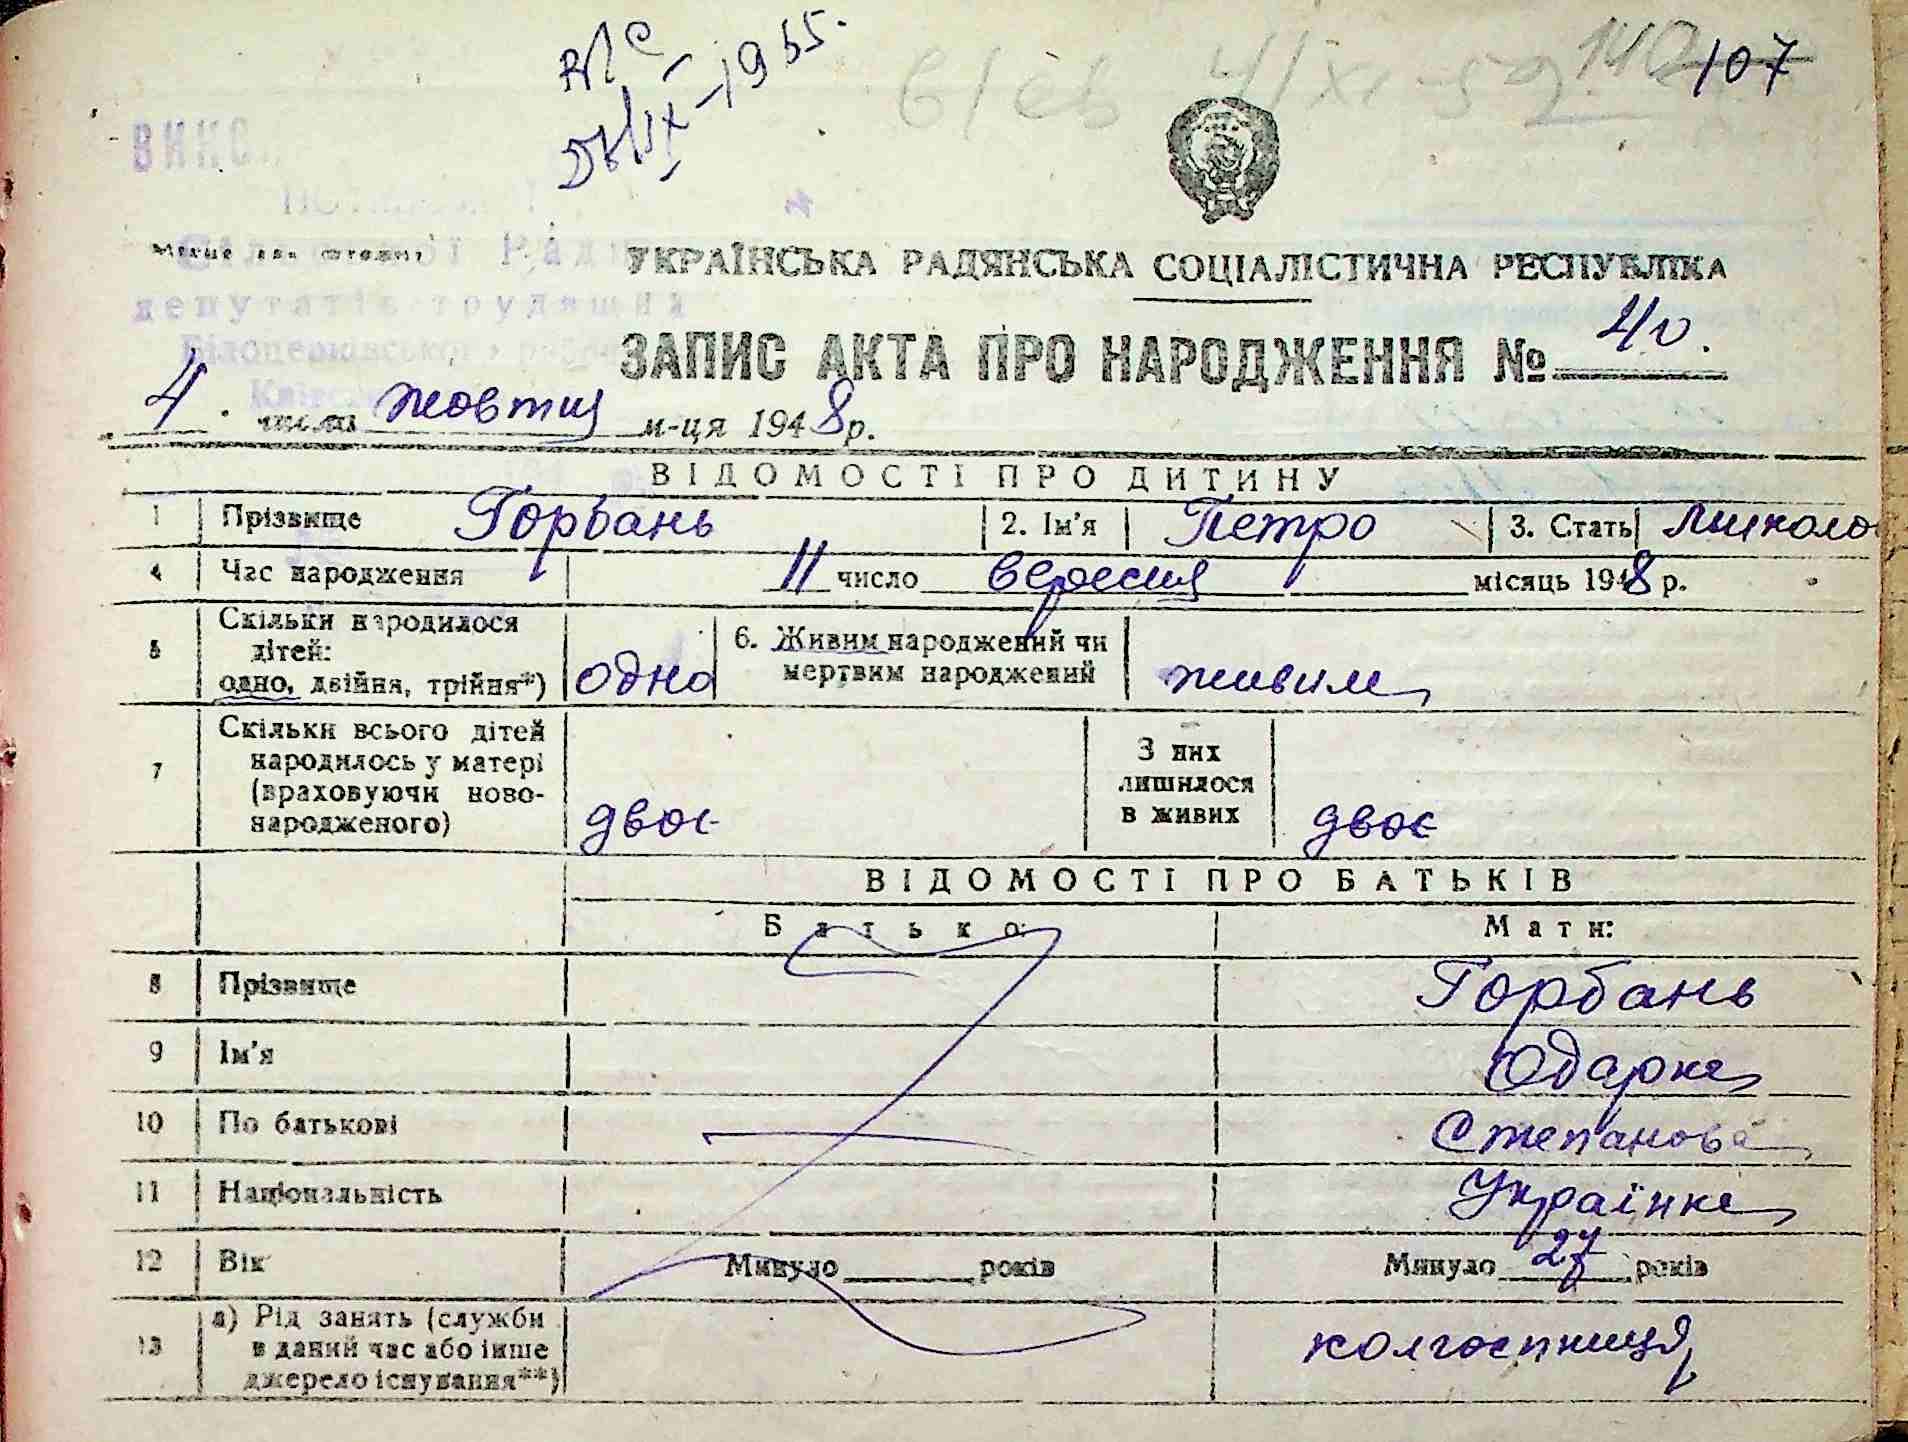 107
УКРАЇНСЬКА РАДЯНСЬКА СОЦІАЛІСТИЧНА РЕСПУБЛІКА
ЗАПИС АКТА ПРО НАРОДЖЕННЯ № 40.
4. числа жовтня м-ця 1948 р.
ВІДОМОСТІ ПРО ДИТИНУ
1 Прізвище Горбань 2. Ім'я Петро 3. Стать
4 Час народження 11 число вересня місяць 1948 р.
5 Скільки народилося дітей: одно, двійня, трійня*) одно 6. Живим народжений чи мертвим народжений живим
7 Скільки всього дітей народилось у матері (враховуючи новонародженого) двоє З них лишилося в живих двоє
ВІДОМОСТІ ПРО БАТЬКІВ
Батько: Мати:
8 Прізвище Горбань
9 Ім'я Одарка
10 По батькові Степанова
11 Національність Українка
12 Вік Минуло років Минуло 27 років
13 а) Рід занять (служби в даний час або інше джерело існування**) колгоспниця